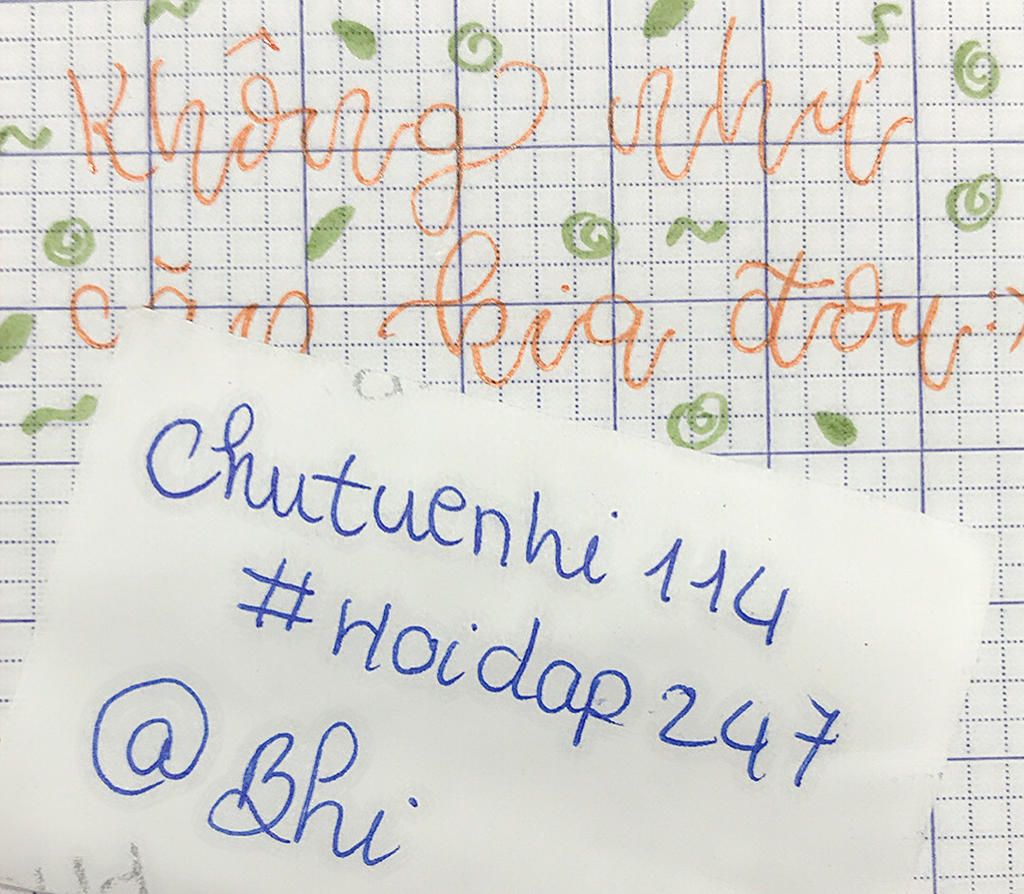 Không như
kia đou :>
Chutuenhi 114
#Hoidap247
@Bhi